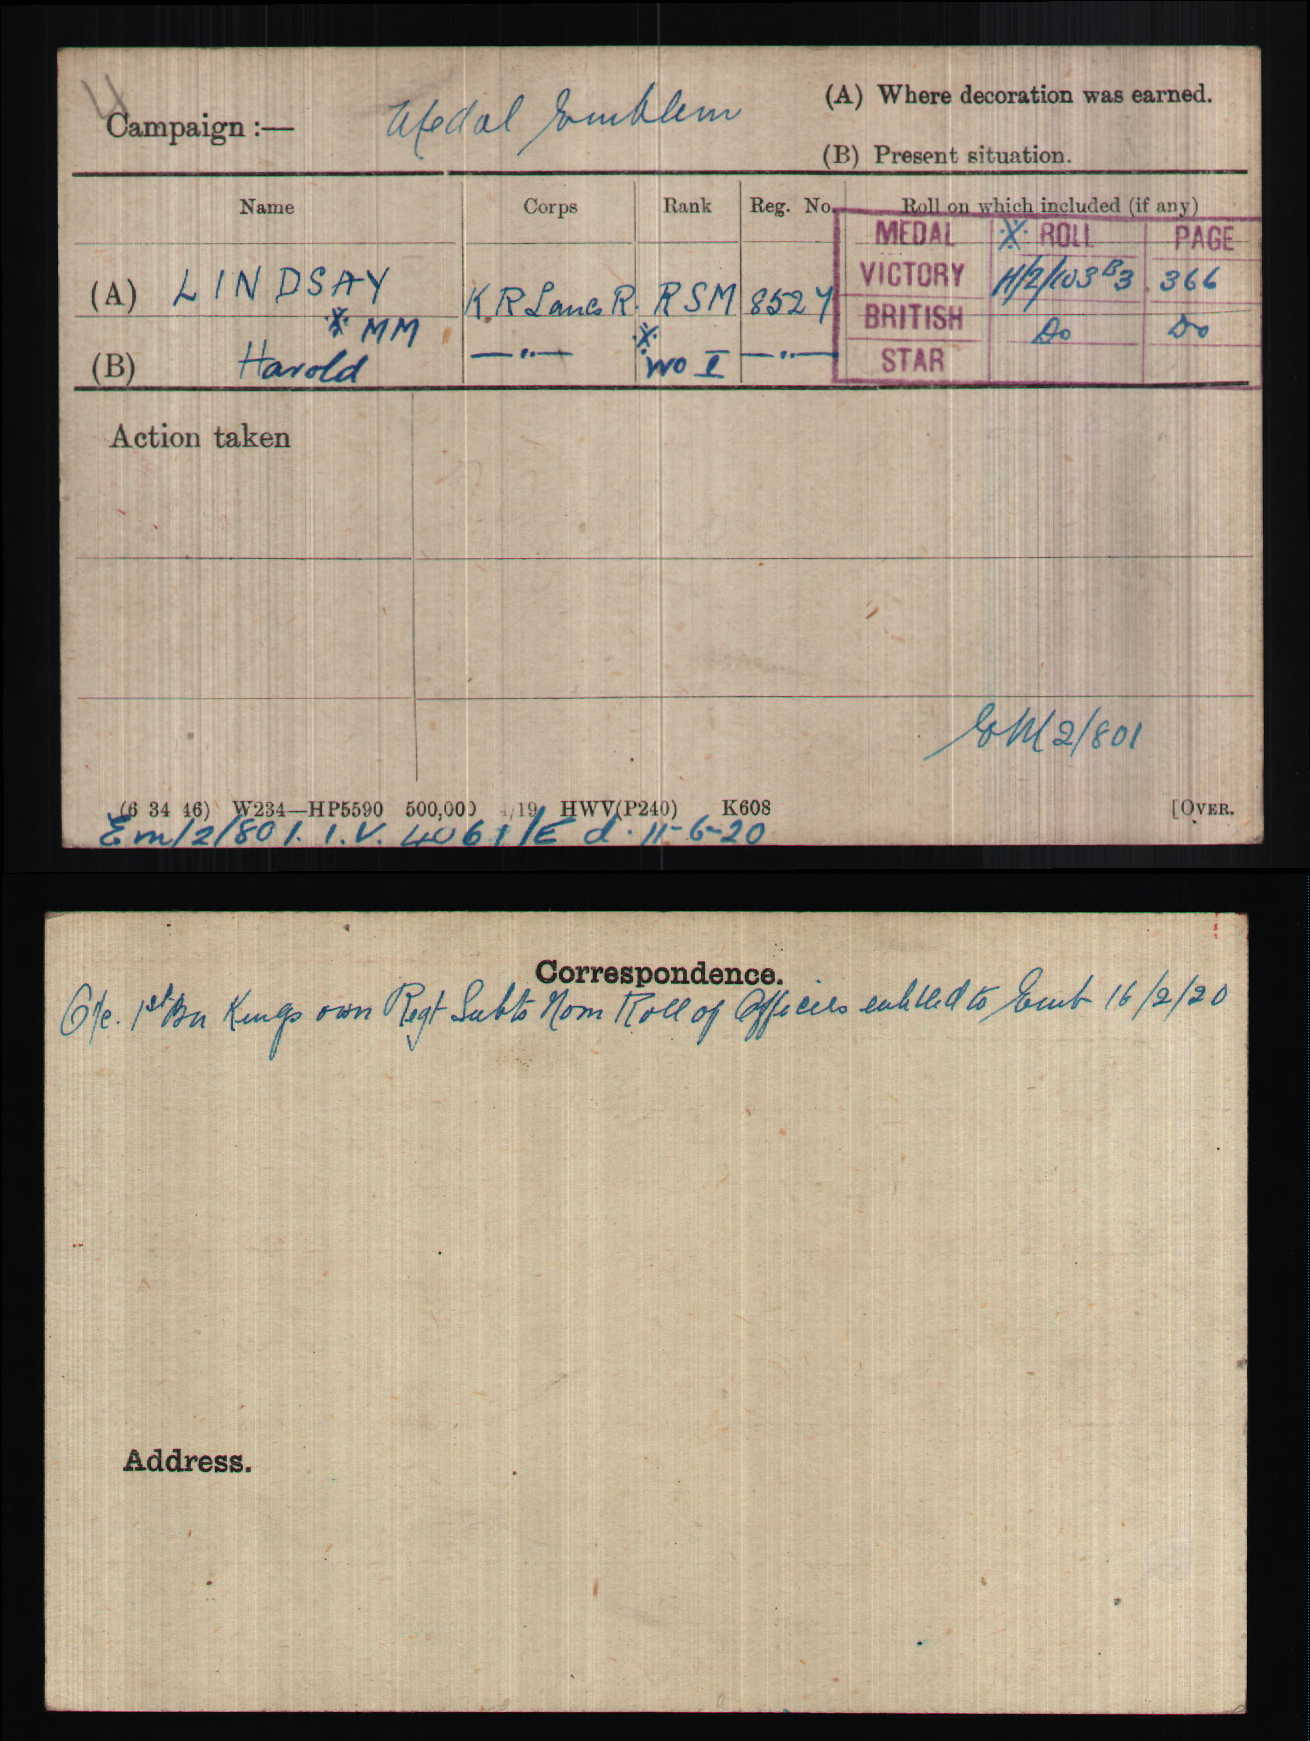 Campaign :— Medal Emblem
(A) Where decoration was earned.
(B) Present situation.
Name Corps Rank Reg. No. Roll on which included (if any)
MEDAL ※ ROLL PAGE
(A) LINDSAY K.R. Lanc R. RSM 8527 VICTORY H/2/103 B3 366
※ MM ※ BRITISH Do Do
(B) Harold —"— WO I —"— STAR
Action taken
EM 2/801
(6 34 46) W234—HP5590 500,000 /19 HWV(P240) K608 [OVER.
Em/2/801. I.V. 4061/E d. 11-6-20
Correspondence.
O/c. 1st Bn Kings own Regt Subts Nom Roll of Officers entitled to Emb 16/2/20
Address.